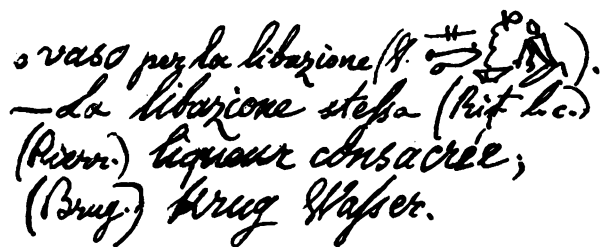 o vaso per la libazione (V. ).
— La libazione stessa (Rit. l.c.)
(Pierr.) liqueur consacrée;
(Brug.) Krug Wasser.